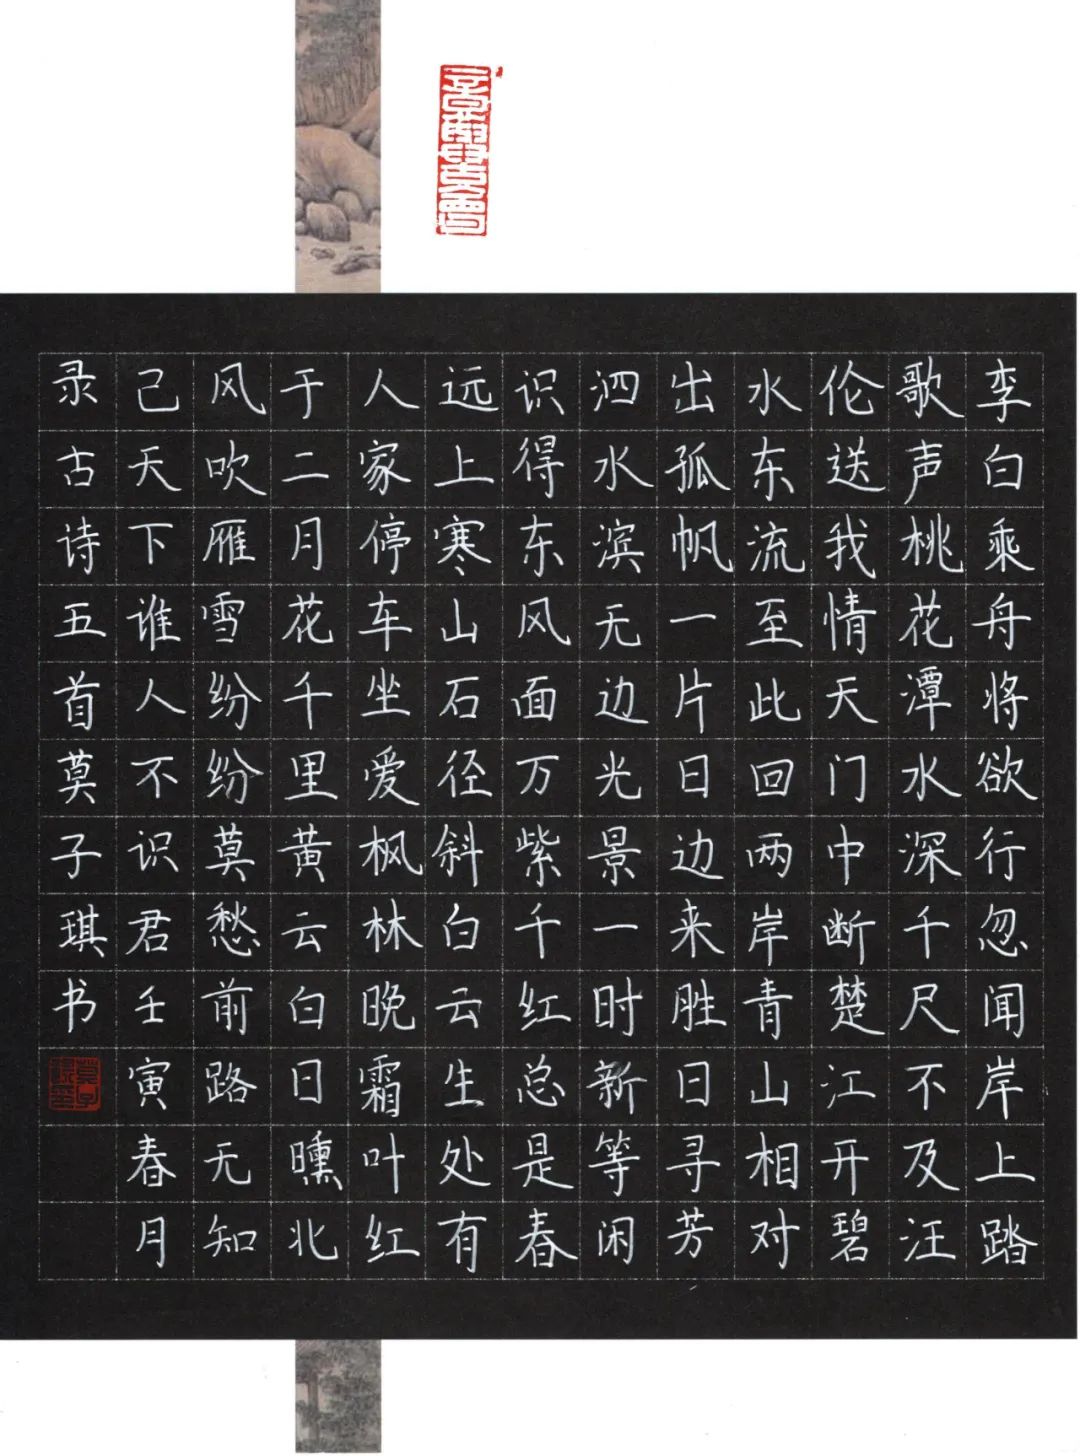 李白乘舟将欲行忽闻岸上踏
歌声桃花潭水深千尺不及汪
伦送我情天门中断楚江开碧
水东流至此回两岸青山相对
出孤帆一片日边来胜日寻芳
泗水滨无边光景一时新等闲
识得东风面万紫千红总是春
远上寒山石径斜白云生处有
人家停车坐爱枫林晚霜叶红
于二月花千里黄云白日曛北
风吹雁雪纷纷莫愁前路无知
己天下谁人不识君壬寅春月
录古诗五首莫子琪书